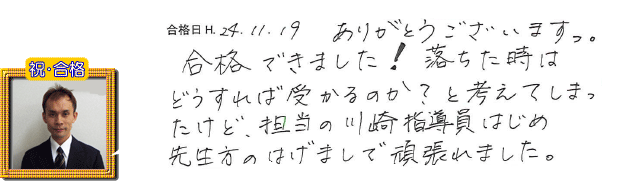 祝・合格
合格日 H. 24. 11. 19 ありがとうございますっ。
合格できました！落ちた時は
どうすれば受かるのか？と考えてしまっ
たけど、担当の川崎指導員はじめ
先生方のはげましで頑張れました。